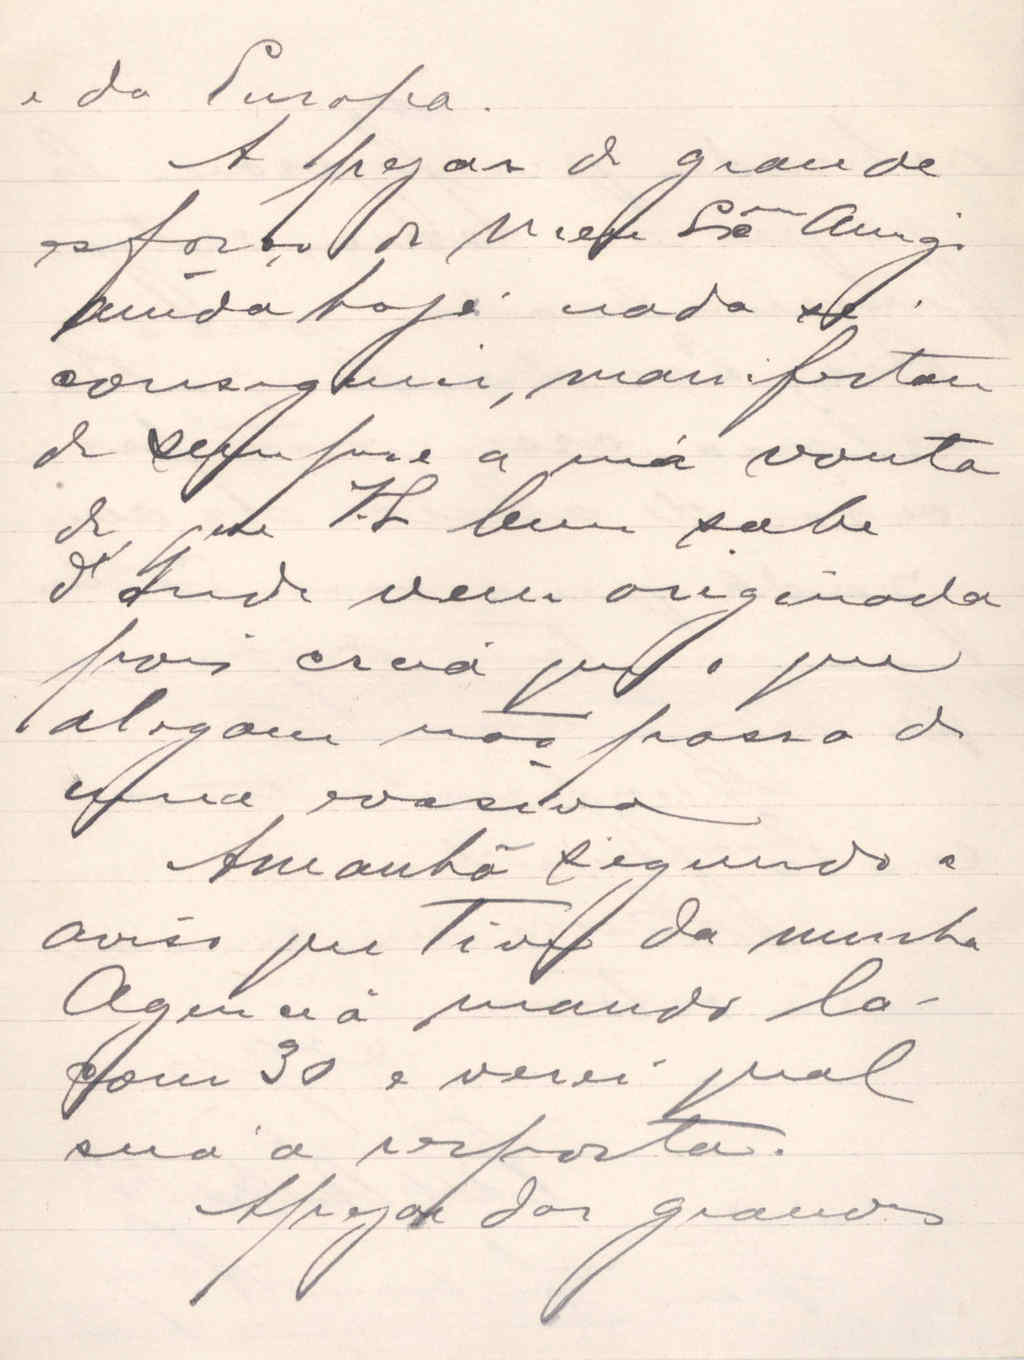 e da Europa.
A pezar de grande
esforço de meu Exmo Amigo
ainda hoje nada se
conseguiu, manifestan
do sempre a má vonta
de, que V.S. bem sabe
d'onde vem originada
pois creia que o que
alegam não passa de
uma evasiva
Amanhã segundo o
aviso que tive da minha
Agencia mando la
com 30 e verei qual
será a resposta.
Apezar dos grandes